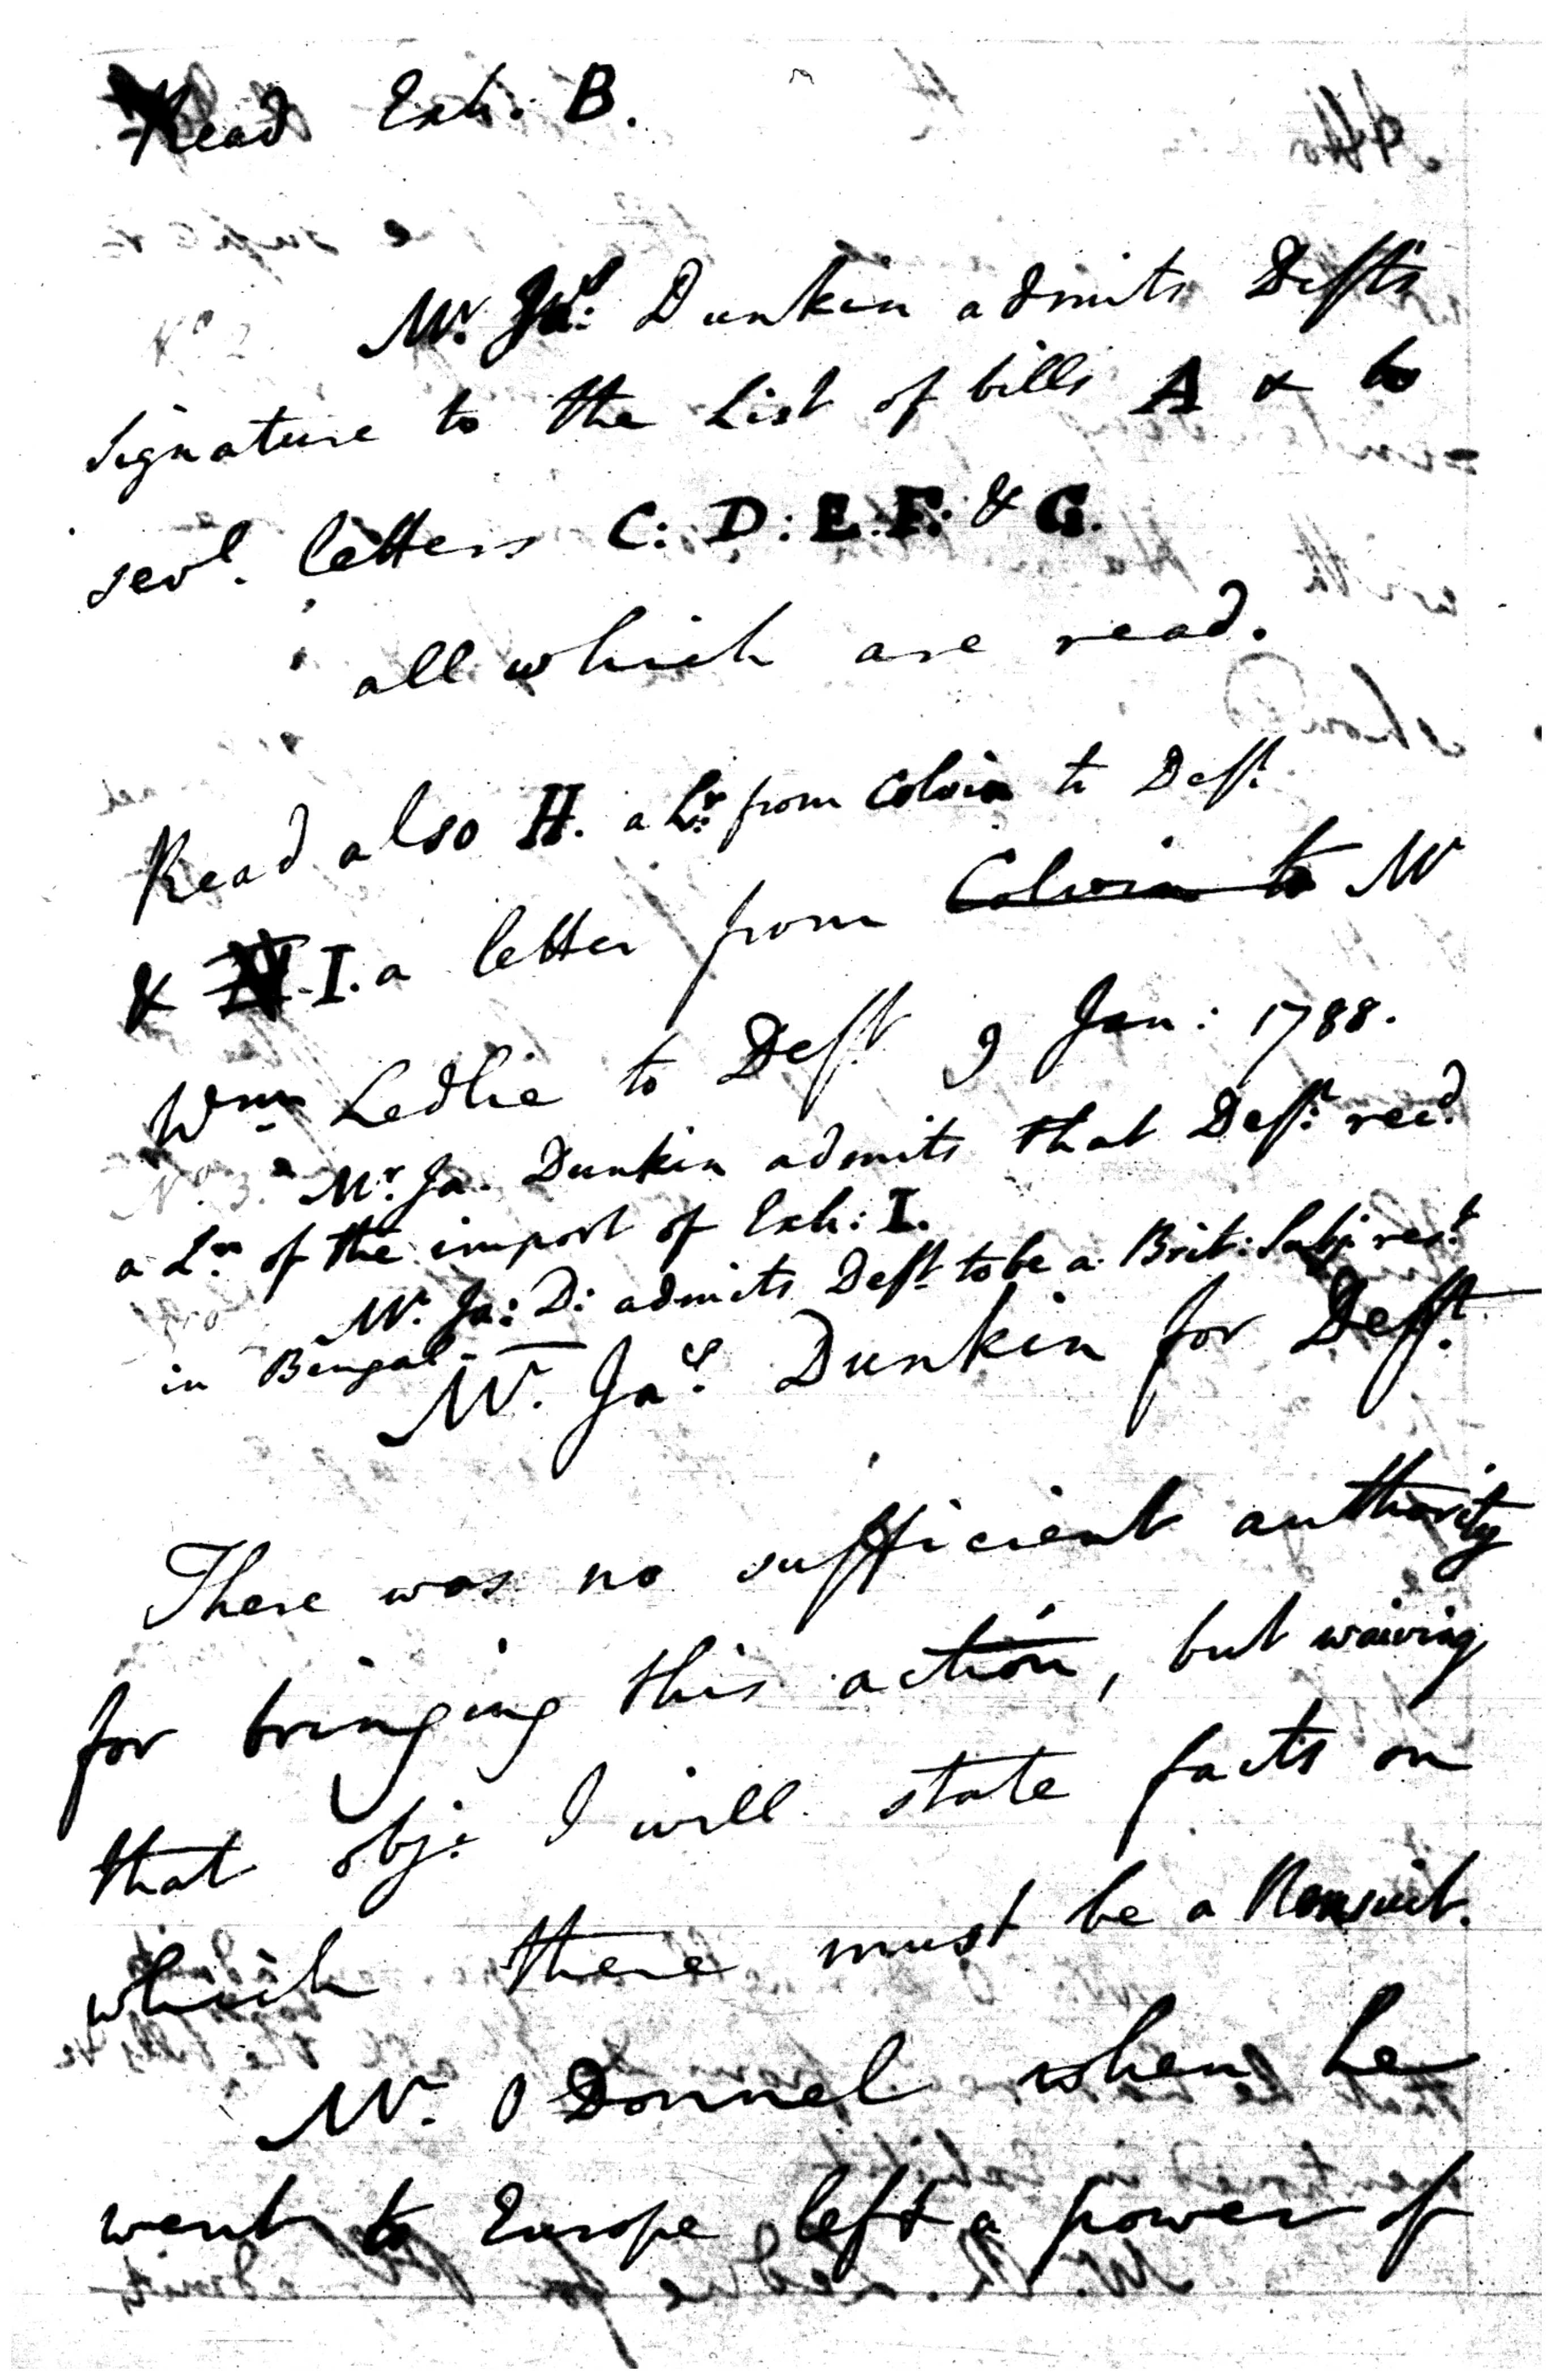 Read Exh: B.
Mr. Jas: Dunkin admits Defts
signature to the List of bills A & to
sevl. letters C: D: E: F: & G.
all which are read.
Read also H. a Lr: from Colvin to Deft.
& I. a letter from Colvin to Mr
Wm Ledlie to Deft. 9 Jan: 1788.
Mr. Ja. Dunkin admits that Deft: recd.
a Lr. of the import of Exh: I.
Mr. Ja: D: admits Deft. to be a Brit: Subj: rest.
in Bengal.
Mr. Jas. Dunkin for Deft.
There was no sufficient authority
for bringing this action, but waiving
that obj: I will state facts on
which there must be a Nonsuit.
Mr. O Donnel when he
went to Europe left a power of